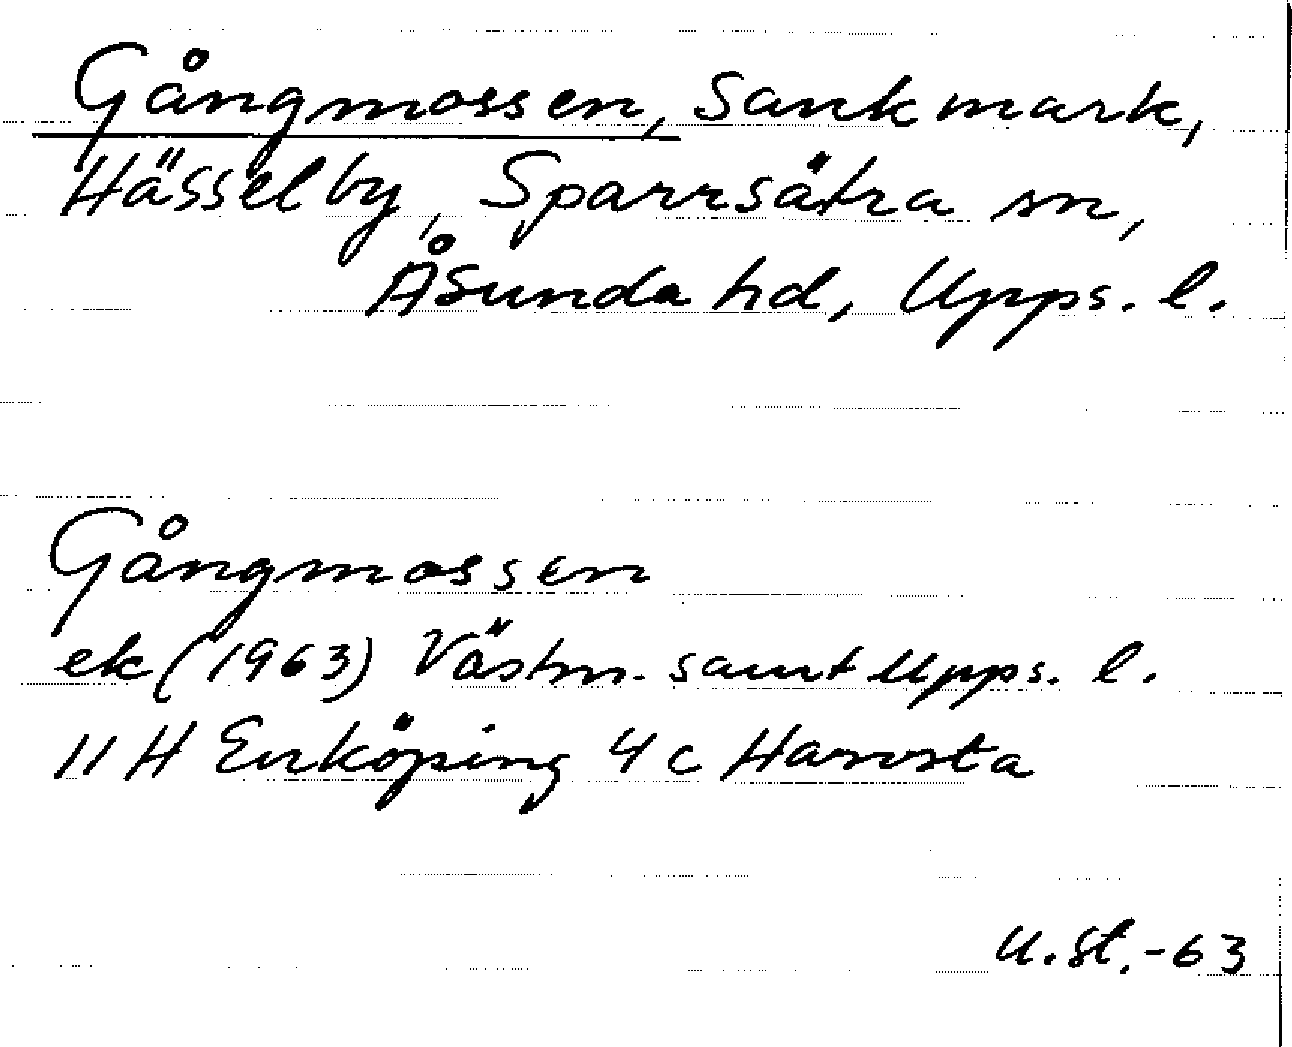 Gångmossen, Sankmark,
Hässelby, Sparrsätra sn,
Åsunda hd, Upps. l.
Gångmossen
ek (1963) Västm. samt Upps. l.
11 H Enköping 4 c Harvsta
U.St.-63